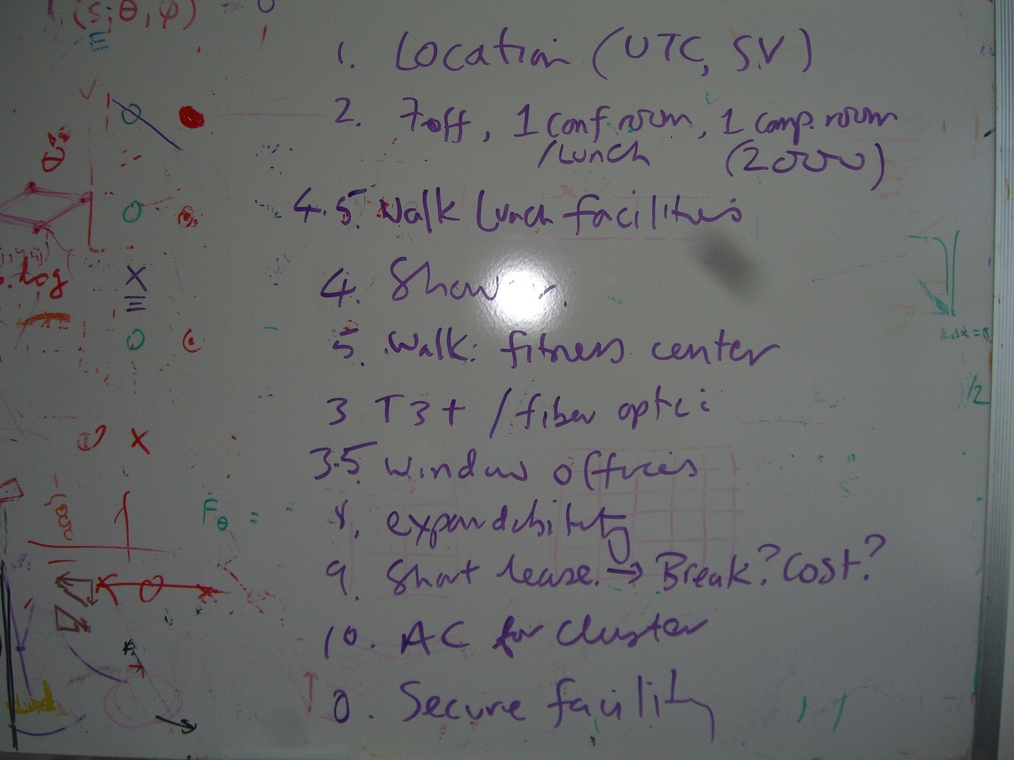 (s; θ, φ) = 0
1. Location (UTC, SV)
2. 7 off, 1 conf. room, 1 comp. room
/Lunch (2000)
4.5. Walk Lunch facilities
4. Show
5. Walk: fitness center
3 T3+ / fiber optic
3.5 Window offices
8. expandability
9. Short lease. → Break? Cost?
10. AC for cluster
0. Secure facility
log
Fθ =
/2